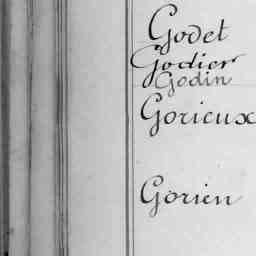 Godet
Godier
Godin
Gorieux
Gorien